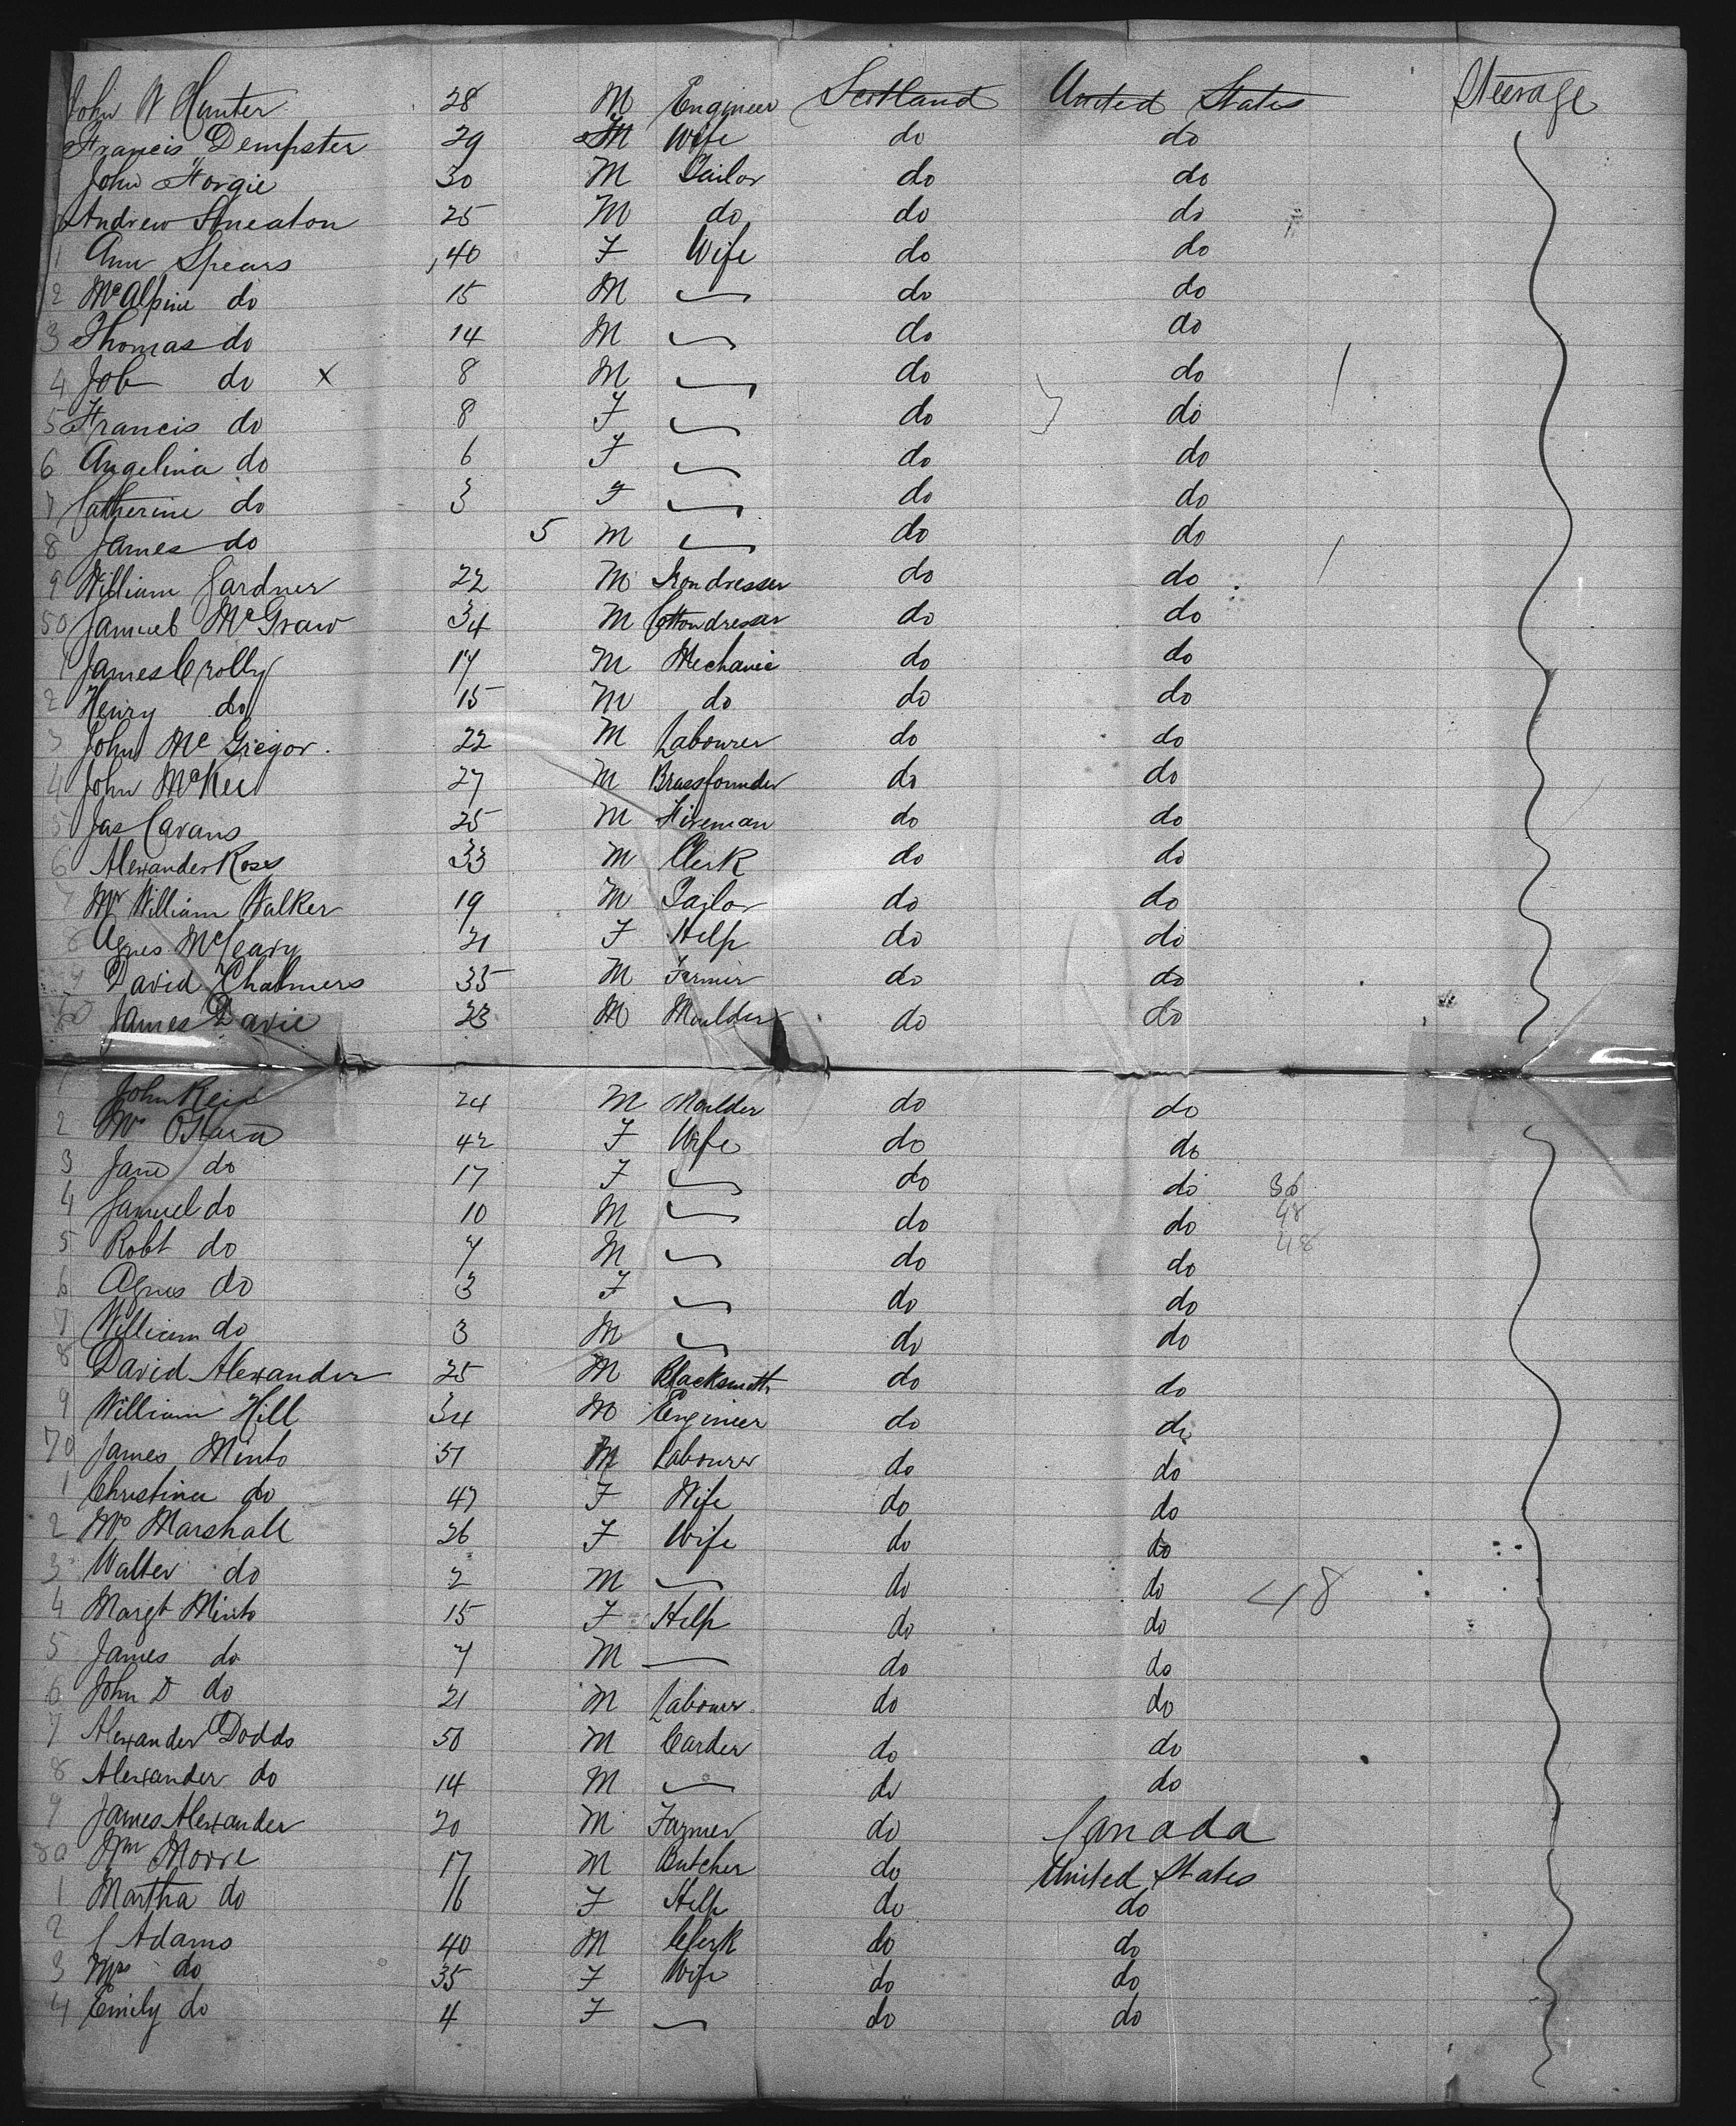 John W Hunter 28 M Engineer Scotland United States Steerage
Francis Dempster 29 M Wife do do
John Forgie 30 M Tailor do do
Andrew Smeaton 25 M do do do
1 Ann Spears 40 F Wife do do
2 McAlpine do 15 M do do
3 Thomas do 14 M do do
4 Job do x 8 M do do
5 Francis do 8 F do do
6 Angelina do 6 F do do
7 Catherine do 3 F do do
8 James do 5 M do do
9 William Gardner 22 M Irondresser do do
50 Samuel McGraw 34 M Cottondresser do do
1 James Crolly 17 M Mechanic do do
2 Henry do 15 M do do do
3 John McGregor 22 M Labourer do do
4 John McKee 27 M Brassfounder do do
5 Jas Cavans 25 M Fireman do do
6 Alexander Ross 33 M Clerk do do
7 Mr William Walker 19 M Tailor do do
8 Agnes McCleary 21 F Help do do
9 David Chalmers 35 M Farmer do do
60 James Davie 23 M Moulder do do
1 John Reid 24 M Moulder do do
2 Mrs OHara 42 F Wife do do
3 Jane do 17 F do do 36
4 Samuel do 10 M do do 48
5 Robt do 7 M do do 48
6 Agnes do 3 F do do
7 William do 3 M do do
8 David Alexander 25 M Blacksmith do do
9 William Hill 34 M Engineer do do
70 James Minto 51 M Labourer do do
1 Christina do 47 F Wife do do
2 Mrs Marshall 26 F Wife do do
3 Walter do 2 M do do 48
4 Margt Minto 15 F Help do do
5 James do 7 M do do
6 John D do 21 M Labourer do do
7 Alexander Dodds 50 M Carder do do
8 Alexander do 14 M do do
9 James Alexander 20 M Farmer do Canada
80 Wm Moore 17 M Butcher do United States
1 Martha do 16 F Help do do
2 Adams 40 M Clerk do do
3 Mrs do 35 F Wife do do
4 Emily do 4 F do do